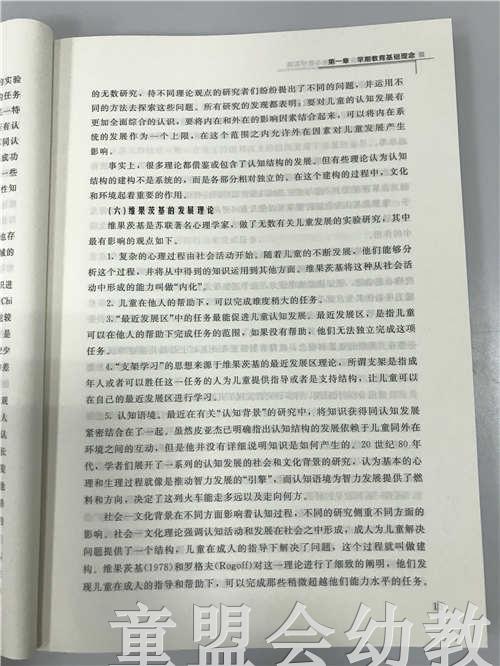 第一章 早期教育基础理念
的无数研究，待不同理论观点的研究者们纷纷提出了不同的问题，并运用不
同的方法去探索这些问题。所有研究的发现都表明：要对儿童的认知发展有
更加全面综合的认识，要将内在和外在的影响因素结合起来，可以将内在系
统的发展作为一个上限，在这个范围之内允许外在因素对儿童发展产生
影响。
事实上，很多理论都借鉴或包含了认知结构的发展。但有些理论认为认知
结构的建构不是系统的，而是各部分相对独立的。在这个建构的过程中，文化
和环境起着重要的作用。
(六)维果茨基的发展理论
维果茨基是苏联著名心理学家，做了无数有关儿童发展的实验研究，其中
最有影响的观点如下。
1. 复杂的心理过程由社会活动开始。随着儿童的不断发展，他们能够分
析这个过程，并将从中得到的知识运用到其他方面。维果茨基将这种从社会活
动中形成的能力叫做“内化”。
2. 儿童在他人的帮助下，可以完成难度稍大的任务。
3. “最近发展区”中的任务最能促进儿童认知发展。最近发展区，是指儿童
可以在他人的帮助下完成任务的范围，如果没有帮助，他们无法独立完成这项
任务。
4. “支架学习”的思想来源于维果茨基的最近发展区理论，所谓支架是指成
年人或者可以胜任这一任务的人为儿童提供指导或者是支持结构，让儿童可以
在自己的最近发展区进行学习。
5. 认知语境。最近在有关“认知背景”的研究中，将知识获得同认知发展
紧密结合在了一起。虽然皮亚杰已明确指出认知结构的发展依赖于儿童同外在
环境之间的互动，但是他并没有详细说明知识是如何产生的。20世纪80年
代，学者们展开了一系列的认知发展的社会和文化背景的研究。认为基本的心
理和生理过程就像是推动智力发展的“引擎”，而认知语境为智力发展提供了燃
料和方向，决定了这列火车能走多远以及走向何方。
社会—文化背景在不同方面影响着认知过程，不同的研究侧重不同方面的
影响。社会—文化理论强调认知活动和发展在社会之中形成，成人为儿童解决
问题提供了一个结构，儿童在成人的指导下解决了问题，这个过程就叫做建
构。维果茨基(1978)和罗格夫(Rogoff)对这一理论进行了细致的阐明，他们发
现儿童在成人的指导和帮助下，可以完成那些稍微超越他们能力水平的任务。
童盟会幼教